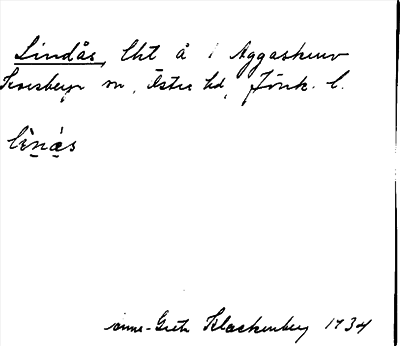 Lindås, lht å i Aggaskruv
Korsberga sn, Östra hd, Jönk. l.
lìnás
Anne-Greth Klackenberg 1934